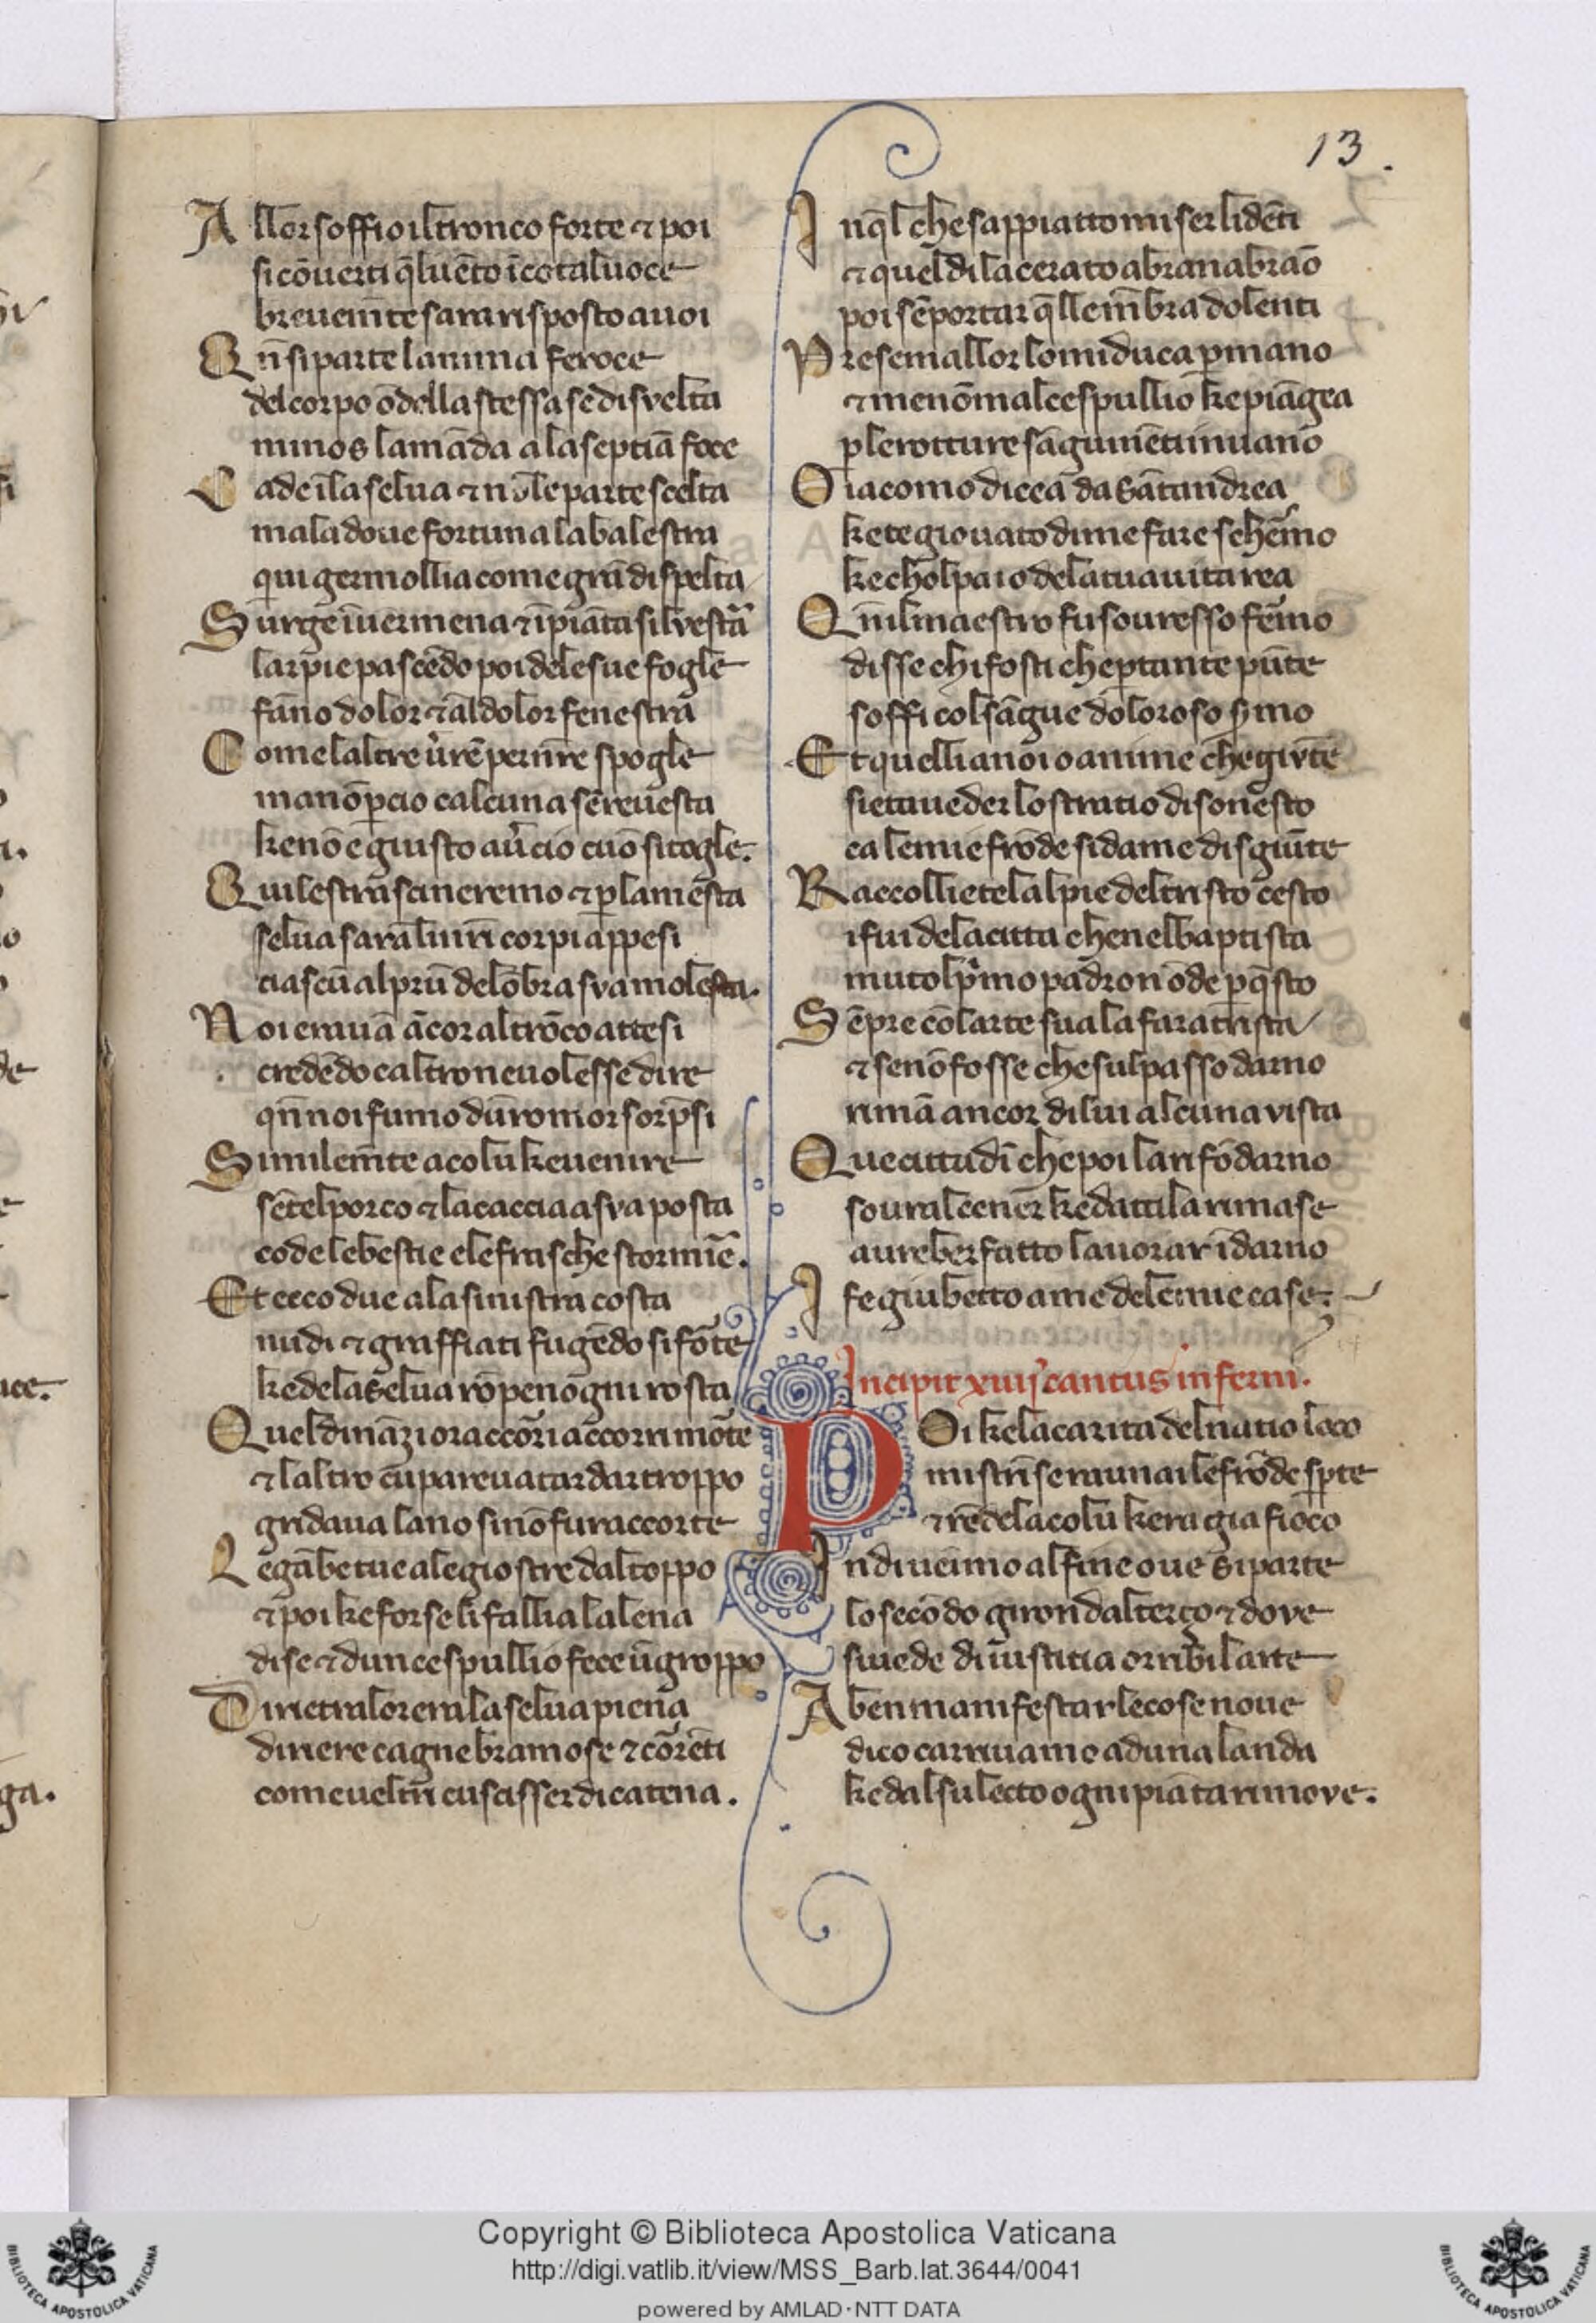 13.
Allor soffio il tronco forte ⁊ poi
si cōuerti q̄l uēto ī cotal uoce
breuem̄te sara risposto a uoi
Qn̄ si parte lanima feroce
del corpo ōdella stessa se disvelta
minos la māda a la septiā foce
Cade ī la selua ⁊ nōle parte scelta
ma la doue fortuna la balestra
qui germollia come grā di spelta
Surge ī uermena ⁊ ī piāta silvestr̄a
larpie pascēdo poi dele sue fogle
fāno dolor ⁊ al dolor fenestra
Come laltre u̓rē per nr̄e spogle
ma nō ꝑcio calcuna sē reuesta
ke nō e giusto au̓ cio cuō si togle.
Qui le strascineremo ⁊ ꝑ la mesta
selua sarāli nr̄i corpi appesi
ciascū al prū delōbra sva molesta.
Noi erauā ācor al trōco attesi
credēdo caltro ne uolesse dire
qn̄ noi fumo dūromor sorp̄si
Similem̄te a colū ke uenire
sētel porco ⁊ la caccia a sva posta
code le bestie e le frasche stormir̄e.
Et ecco due ala sinistra costa
nudi ⁊ graffiati fugēdo si fōte
ke dela selua rōpeno ōgni rosta
Quel dināzi or accōri accorri mōte
⁊ laltro cui pareua tardar troppo
gridaua lano si nō fur accorte
Le gābe tue ale giostre dal toppo
⁊ poi ke forse li fallia la lena
di se ⁊ dun cespullio fece ū groppo
Diretra lor era la selua piena
di nere cagne bramose ⁊ cōrēti
come ueltri cuscisser di catena.
In q̄l che sappiatto miser li dēti
⁊ quel dilacerato a bran a brāo
poi sē portar q̄lle mēbra dolenti
Presemallor lo mi duca ꝑ mano
⁊ menōmal cespullio ke piāgea
ꝑ le rotture sāguinēti inuano
O iacomo dicea da sātandrea
ke te giouato di me fare schēmo
ke cholpa io dela tua uita rea
Qn̄ il maestro fu souresso fēmo
disse chi fosti che ꝑ tante pūte
soffi col sāgue doloroso ẜmo
Et quelli a noi o anime che givte
siete a ueder lo stratio disonesto
ca le mie frōde si da me disgiūte
Raccollietel al pie del tristo cesto
i fui dela citta che nel baptista
muto lp̓mo padron ōde ꝑ q̄sto
Sēpre cō larte sua la fara trista
⁊ se nō fosse che sul passo darno
rimā ancor di lui alcuna vista
Que cittadī che poi la rifōdarno
soural cener ke dattila rimase
aureber fatto lauorar īdarno
I fe giubetto a me dele mie case.
Incipit xiiij cantus inferni.
POi ke la carita del natio loco
mi strīse raunai le frōde sꝑte
⁊ rēdela colū kera gia fioco
Indi uēimo al fine oue si parte
lo secōdo giron dal terço ⁊ dove
si uede di iustitia orribil arte
A ben manifestar le cose noue
dico carriuamo ad una landa
ke dal su lecto ogni piāta rimove.
Copyright © Biblioteca Apostolica Vaticana
http://digi.vatlib.it/view/MSS_Barb.lat.3644/0041
powered by AMLAD·NTT DATA
BIBLIOTECA APOSTOLICA VATICANA
BIBLIOTECA APOSTOLICA VATICANA